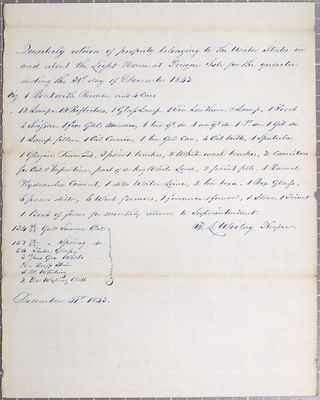 Quarterly return of property belonging to the United States in
and about the Light House at Presque Isle for the quarter
ending the 31st day of December 1843.
1 Boat with Rudder and 4 Oars
12 Lamps, 14 Reflectors, 1 Glass Lamp, 1 Tin Lanthern & Lamp, 1 Hood
4 Scissors, 1 five Gall Measure, 1 two qt. do 1 one qt. do 1 Pt. do 1 gil do
1 Lamp filler 1 Oil Carrier, 1 ten Gall Can, 4 Oil butts, 1 Spatula
1 Glaziers Diamond, 3 paint brushes, 2 White wash brushes, 2 Canisters
for Oil & Turpentine, part of a keg White Lead, 2 paint pots, 1 Barrel
Hydraulic Cement, 1 Water Lime, 2 1 Box Glass,
4 do, 4 frames, 1 , 1 Stove, 1
1 book of forms for monthly returns to Superintendent.
134 Galls Summer Oil
142 " Spring do
54 Tube Glasses
Gro Wicks
Buff Skin
Whiting
2 Yds Wiping Cloth
Keeper
December 31st 1843.